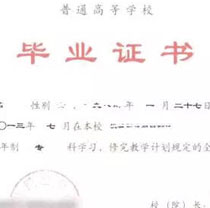 普通高等学校
毕业证书
性别 一月二十七日
〇一三年 七 月在本校
年制 专 科学习，修完教学计划规定的全
校（院）长：